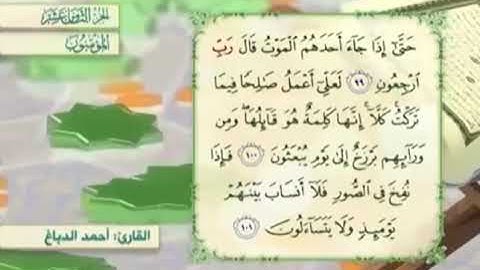 الجزء الثامن عشر
المؤمنون
حَتَّىٰٓ إِذَا جَآءَ أَحَدَهُمُ ٱلْمَوْتُ قَالَ رَبِّ
ٱرْجِعُونِ ٩٩ لَعَلِّىٓ أَعْمَلُ صَٰلِحًا فِيمَا
تَرَكْتُ ۚ كَلَّآ ۚ إِنَّهَا كَلِمَةٌ هُوَ قَآئِلُهَا ۖ وَمِن
وَرَآئِهِم بَرْزَخٌ إِلَىٰ يَوْمِ يُبْعَثُونَ ١٠٠ فَإِذَا
نُفِخَ فِى ٱلصُّورِ فَلَآ أَنسَابَ بَيْنَهُمْ
يَوْمَئِذٍ وَلَا يَتَسَآءَلُونَ ١٠١
القارئ: أحمد الدباغ